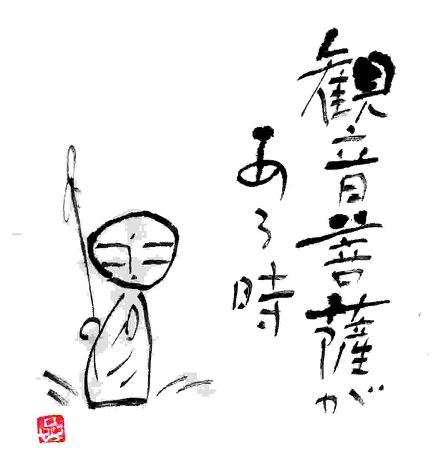 観音菩薩が
ある時